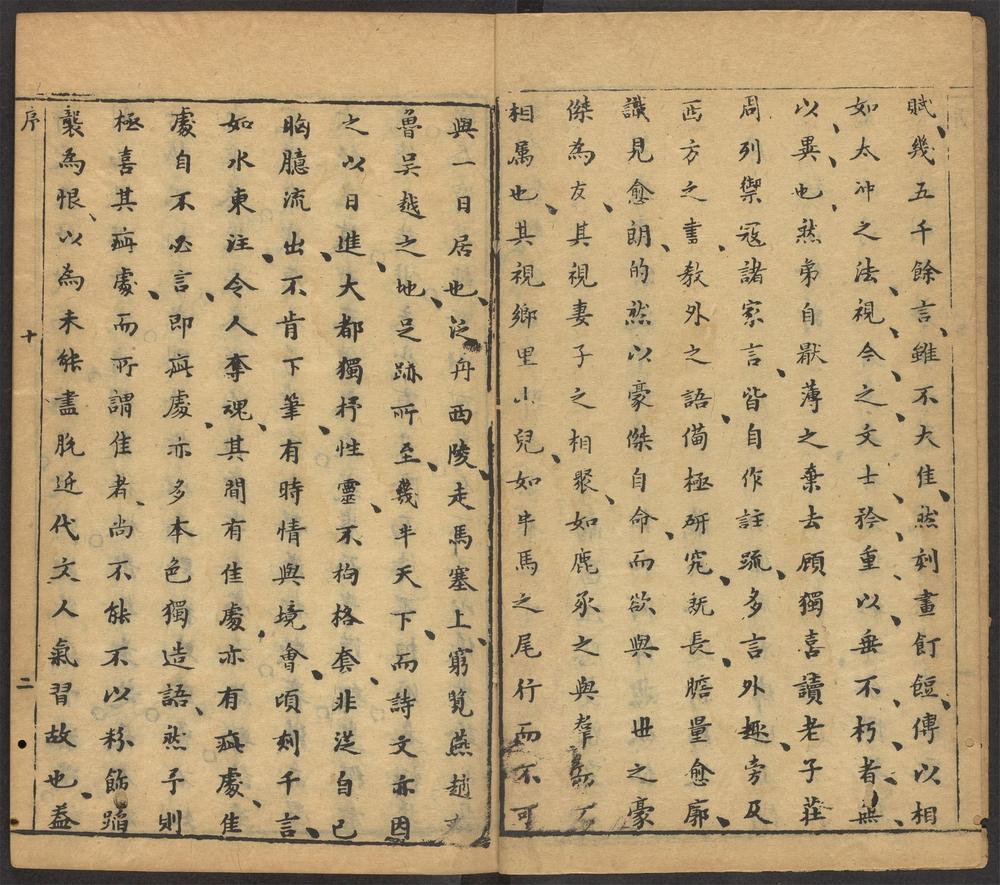 賦、幾五千餘言、雖不大佳、然刻畫飣餖、傳以相
如太冲之法、視今之文士、矜重以垂不朽者、無
以異也、然弟自厭薄之棄去顧獨喜讀老子莊
周列禦寇諸家言、皆自作註疏、多言外趣、旁及
西方之書、教外之語、備極研究、既長、膽量愈廓、
識見愈朗、的然以豪傑自命、而欲與世之豪
傑為友、其視妻子之相聚、如鹿豕之與羣
相屬也、其視鄉里小兒、如牛馬之尾行而不可
與一日居也、泛舟西陵、走馬塞上、窮覽燕趙
魯吳越之地、足跡所至、幾半天下、而詩文亦因
之以日進、大都獨抒性靈、不拘格套、非從自己
胸臆流出、不肯下筆、有時情與境會、頃刻千言、
如水東注、令人奪魂、其間有佳處、亦有疵處、佳
處自不必言、即疵處、亦多本色獨造語、然予則
極喜其疵處、而所謂佳者、尚不能不以粉飾蹈
襲為恨、以為未能盡脫近代文人氣習故也、蓋
序 十 二